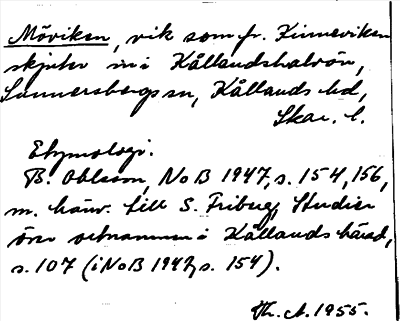 Möviken, vik som fr. Kinneviken
skjuter in i Kållandshalvön,
Sunnersbergs sn, Kållands hd,
Skar. l.
Etymologi.
B. Ohlsson, NoB 1947, s. 154, 156,
m. hänv. till S. Friberg, Studier
över ortnamnen i Kållands härad,
s. 107 (i NoB 1947, s. 154).
Th. A. 1955.